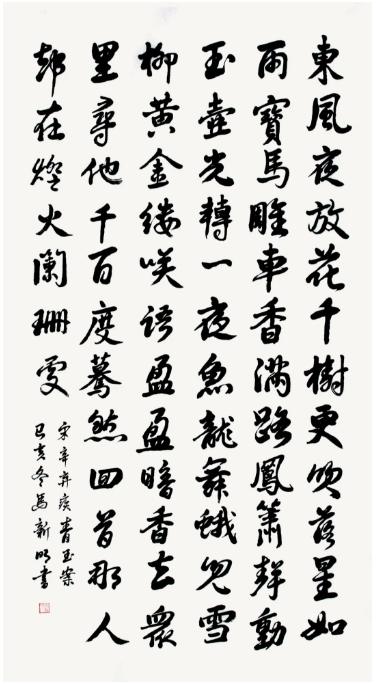 東風夜放花千樹更吹落星如
雨寶馬雕車香滿路鳳簫聲動
玉壺光轉一夜魚龍舞蛾兒雪
柳黃金縷咲語盈盈暗香去眾
里尋他千百度驀然回首那人
却在燈火闌珊處
宋辛弃疾青玉案
己亥冬馬新明書